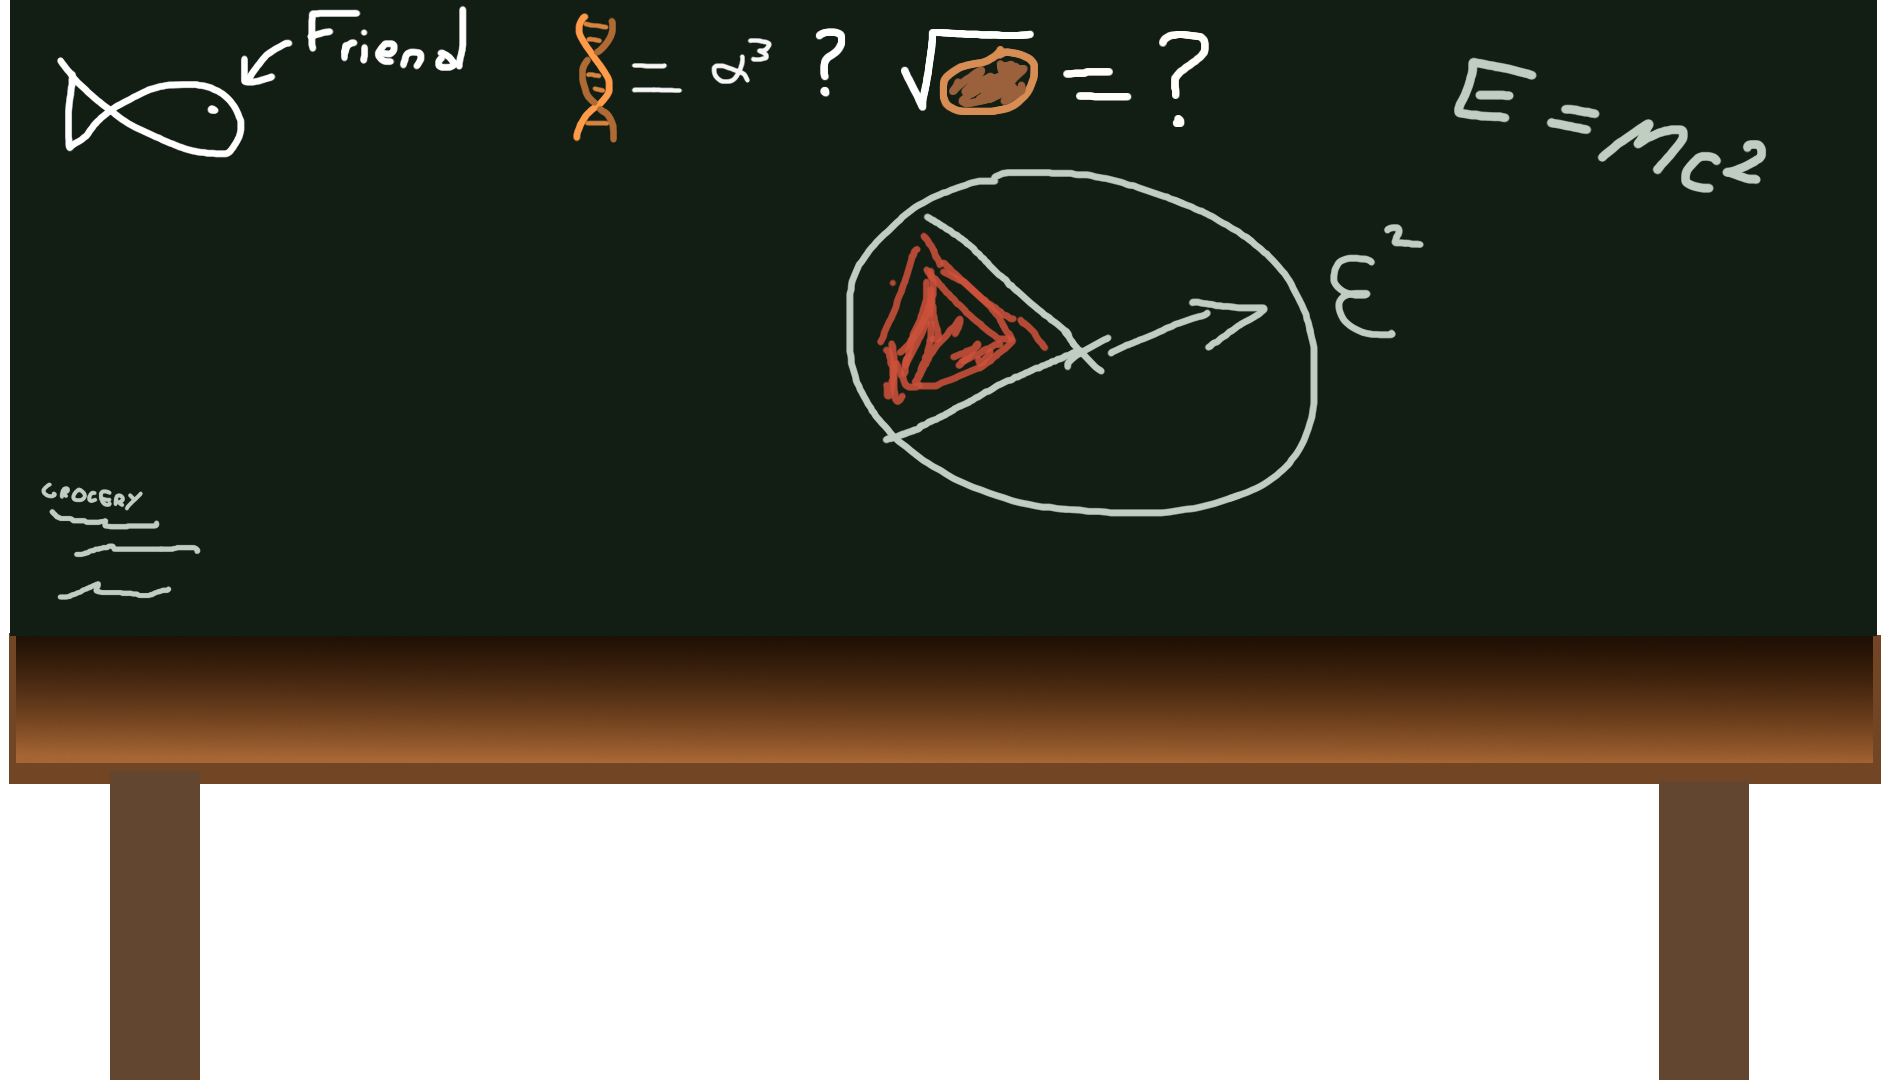 Friend
= α³ ?
√ = ?
E = mc²
ε²
GROCERY